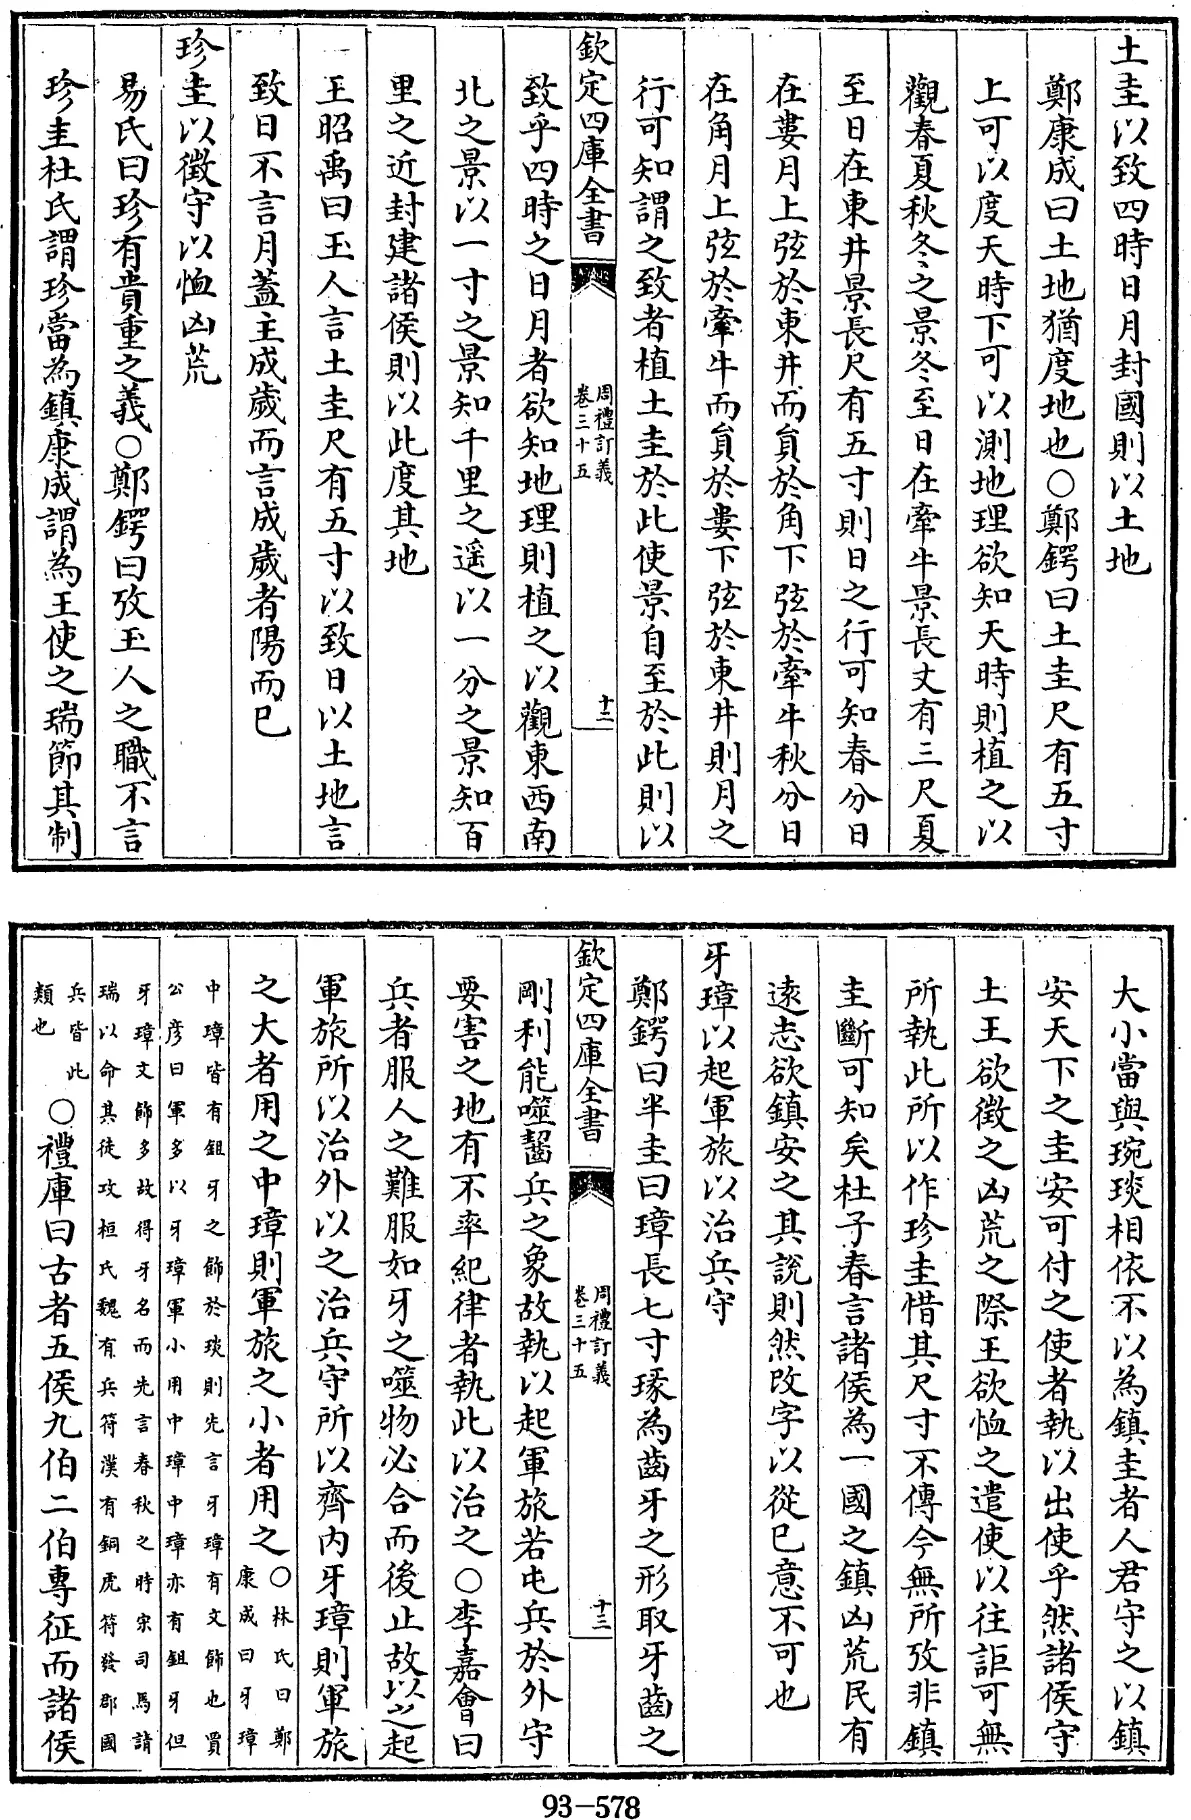 土圭以致四時日月封國則以土地
鄭康成曰土地猶度地也○鄭鍔曰土圭尺有五寸
上可以度天時下可以測地理欲知天時則植之以
觀春夏秋冬之景冬至日在牽牛景長丈有三尺夏
至日在東井景長尺有五寸則日之行可知春分日
在婁月上弦於東井而負於角下弦於牽牛秋分日
在角月上弦於牽牛而負於婁下弦於東井則月之
行可知謂之致者植土圭於此使景自至於此則以
欽定四庫全書
周禮訂義
卷三十五
十二
致乎四時之日月者欲知地理則植之以觀東西南
北之景以一寸之景知千里之遥以一分之景知百
里之近封建諸侯則以此度其地
王昭禹曰玉人言土圭尺有五寸以致日以土地言
致日不言月蓋主成歲而言成歲者陽而已
珍圭以徵守以恤凶荒
易氏曰珍有貴重之義○鄭鍔曰攷玉人之職不言
珍圭杜氏謂珍當為鎮康成謂為王使之瑞節其制
大小當與琬琰相依不以為鎮圭者人君守之以鎮
安天下之圭安可付之使者執以出使乎然諸侯守
土王欲徵之凶荒之際王欲恤之遣使以往詎可無
所執此所以作珍圭惜其尺寸不傳今無所攷非鎮
圭斷可知矣杜子春言諸侯為一國之鎮凶荒民有
遠志欲鎮安之其說則然改字以從已意不可也
牙璋以起軍旅以治兵守
鄭鍔曰半圭曰璋長七寸瑑為齒牙之形取牙齒之
欽定四庫全書
周禮訂義
卷三十五
十三
剛利能噬齧兵之象故執以起軍旅若屯兵於外守
要害之地有不率紀律者執此以治之○李嘉會曰
兵者服人之難服如牙之噬物必合而後止故以之起
軍旅所以治外以之治兵守所以齊内牙璋則軍旅
之大者用之中璋則軍旅之小者用之○林氏曰鄭
康成曰牙璋
中璋皆有鉏牙之飾於琰則先言牙璋有文飾也賈
公彦曰軍多以牙璋軍小用中璋中璋亦有鉏牙但
牙璋文飾多故得牙名而先言春秋之時宋司馬請
瑞以命其徒攻桓氏魏有兵符漢有銅虎符發郡國
兵皆此
類也
○禮庫曰古者五侯九伯二伯專征而諸侯
93-578